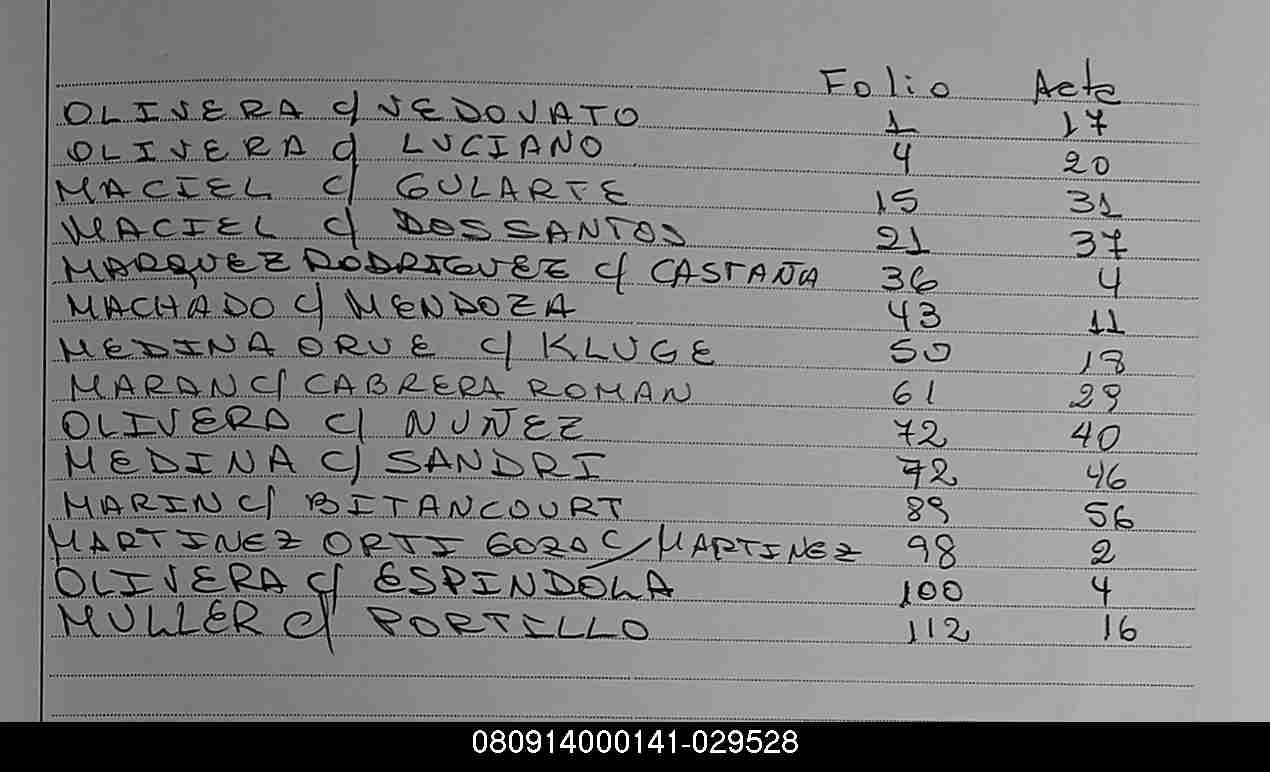 Folio Acta
OLIVERA c/ VEDOVATO 1 17
OLIVERA c/ LUCIANO 4 20
MACIEL c/ GULARTE 15 31
MACIEL c/ DOS SANTOS 21 37
MARQUEZ RODRIGUEZ c/ CASTAÑA 36 4
MACHADO c/ MENDOZA 43 11
MEDINA ORUE c/ KLUGE 50 18
MARAN c/ CABRERA ROMAN 61 29
OLIVERA c/ NUÑEZ 72 40
MEDINA c/ SANDRI 72 46
MARIN c/ BITANCOURT 89 56
MARTINEZ ORTIGOZA c/ MARTINEZ 98 2
OLIVERA c/ ESPINDOLA 100 4
MULLER c/ PORTILLO 112 16
080914000141-029528